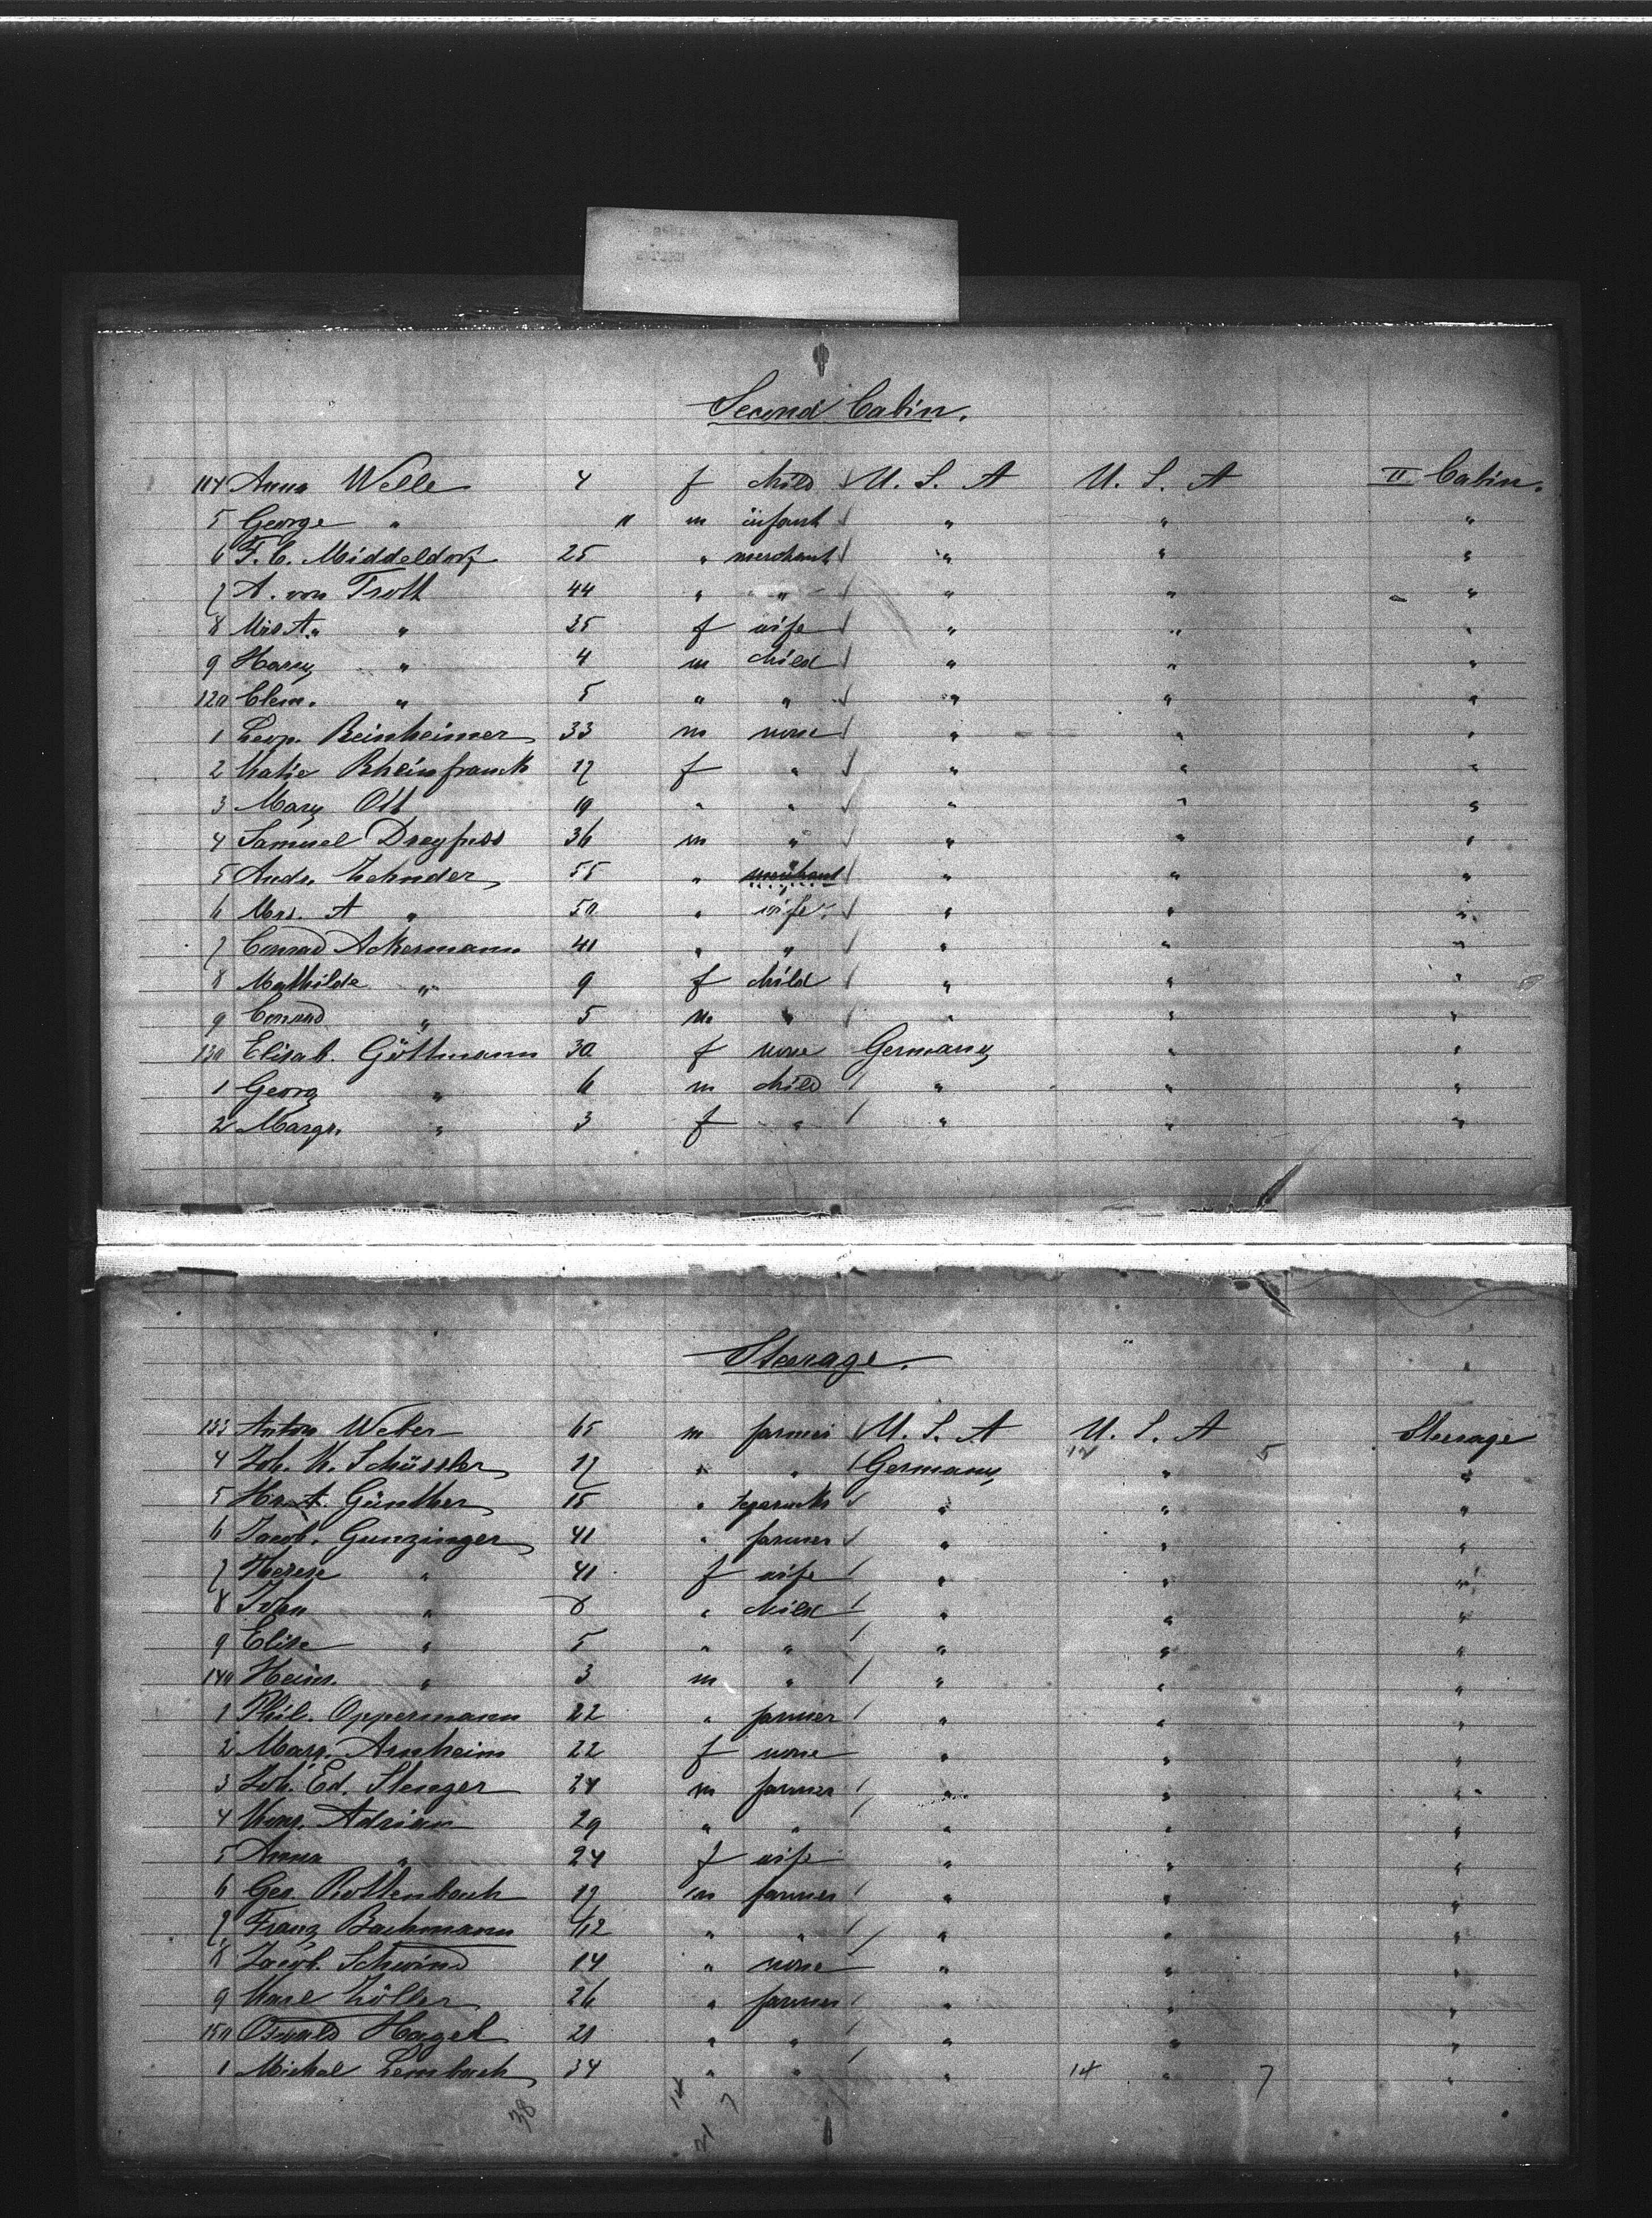 Second Cabin.
114 Anna Welle 4 f child U. S. A U. S. A II Cabin.
5 George " " m infant " " "
6 F. C. Middeldorf 25 " merchant " " "
7 A. von Trott 44 " " " " "
8 Mrs A. " 35 f wife " " "
9 Harry " 4 m child " " "
120 Clem. " 5 " " " " "
1 Leop. Beinheimer 33 m none " " "
2 Katie Rheinfranck 17 f " " " "
3 Mary Ott 19 " " " " "
4 Samuel Dreyfuss 36 m " " " "
5 Andr. Zehnder 55 " merchant " " "
6 Mrs. A " 50 " wife " " "
7 Conrad Ackermann 41 " " " " "
8 Mathilde " 9 f child " " "
9 Conrad " 5 m " " " "
130 Elisab. Göttmann 30 f none Germany " "
1 Georg " 6 m child " " "
2 Margr. " 3 f " " " "
Steerage.
133 Anton Weber 65 m farmer U. S. A U. S. A Steerage
4 Joh. K. Schüssler 17 " " Germany " "
5 Günther 15 " " " "
6 Jacob. Gunzinger 41 " farmer " " "
7 Therese " 41 f wife " " "
8 John " 8 " child " " "
9 Elise " 5 " " " " "
140 Heinr. " 3 m " " " "
1 Phil. Oppermann 22 " farmer " " "
2 Marg. Arnheim 22 f none " " "
3 Joh. Ed. Stenger 24 m farmer " " "
4 Adrian 29 " " " " "
5 Anna " 24 f wife " " "
6 Geo. Rottenbach 17 m farmer " " "
7 Franz Bachmann " " " " "
8 Jacob. Schwind 14 " none " " "
9 Karl Zöller 26 " farmer " " "
150 Oswald Hagel 21 " " " " "
1 Michael Lembach 34 " " " 14 " 7 "
38 14 7
21